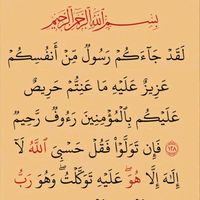 بِسْمِ اللَّهِ الرَّحْمَٰنِ الرَّحِيمِ
لَقَدْ جَآءَكُمْ رَسُولٌ مِّنْ أَنفُسِكُمْ
عَزِيزٌ عَلَيْهِ مَا عَنِتُّمْ حَرِيصٌ
عَلَيْكُم بِالْمُؤْمِنِينَ رَءُوفٌ رَّحِيمٌ
١٢٨ فَإِن تَوَلَّوْا۟ فَقُلْ حَسْبِىَ اللَّهُ لَآ
إِلَٰهَ إِلَّا هُوَ ۖ عَلَيْهِ تَوَكَّلْتُ ۖ وَهُوَ رَبُّ